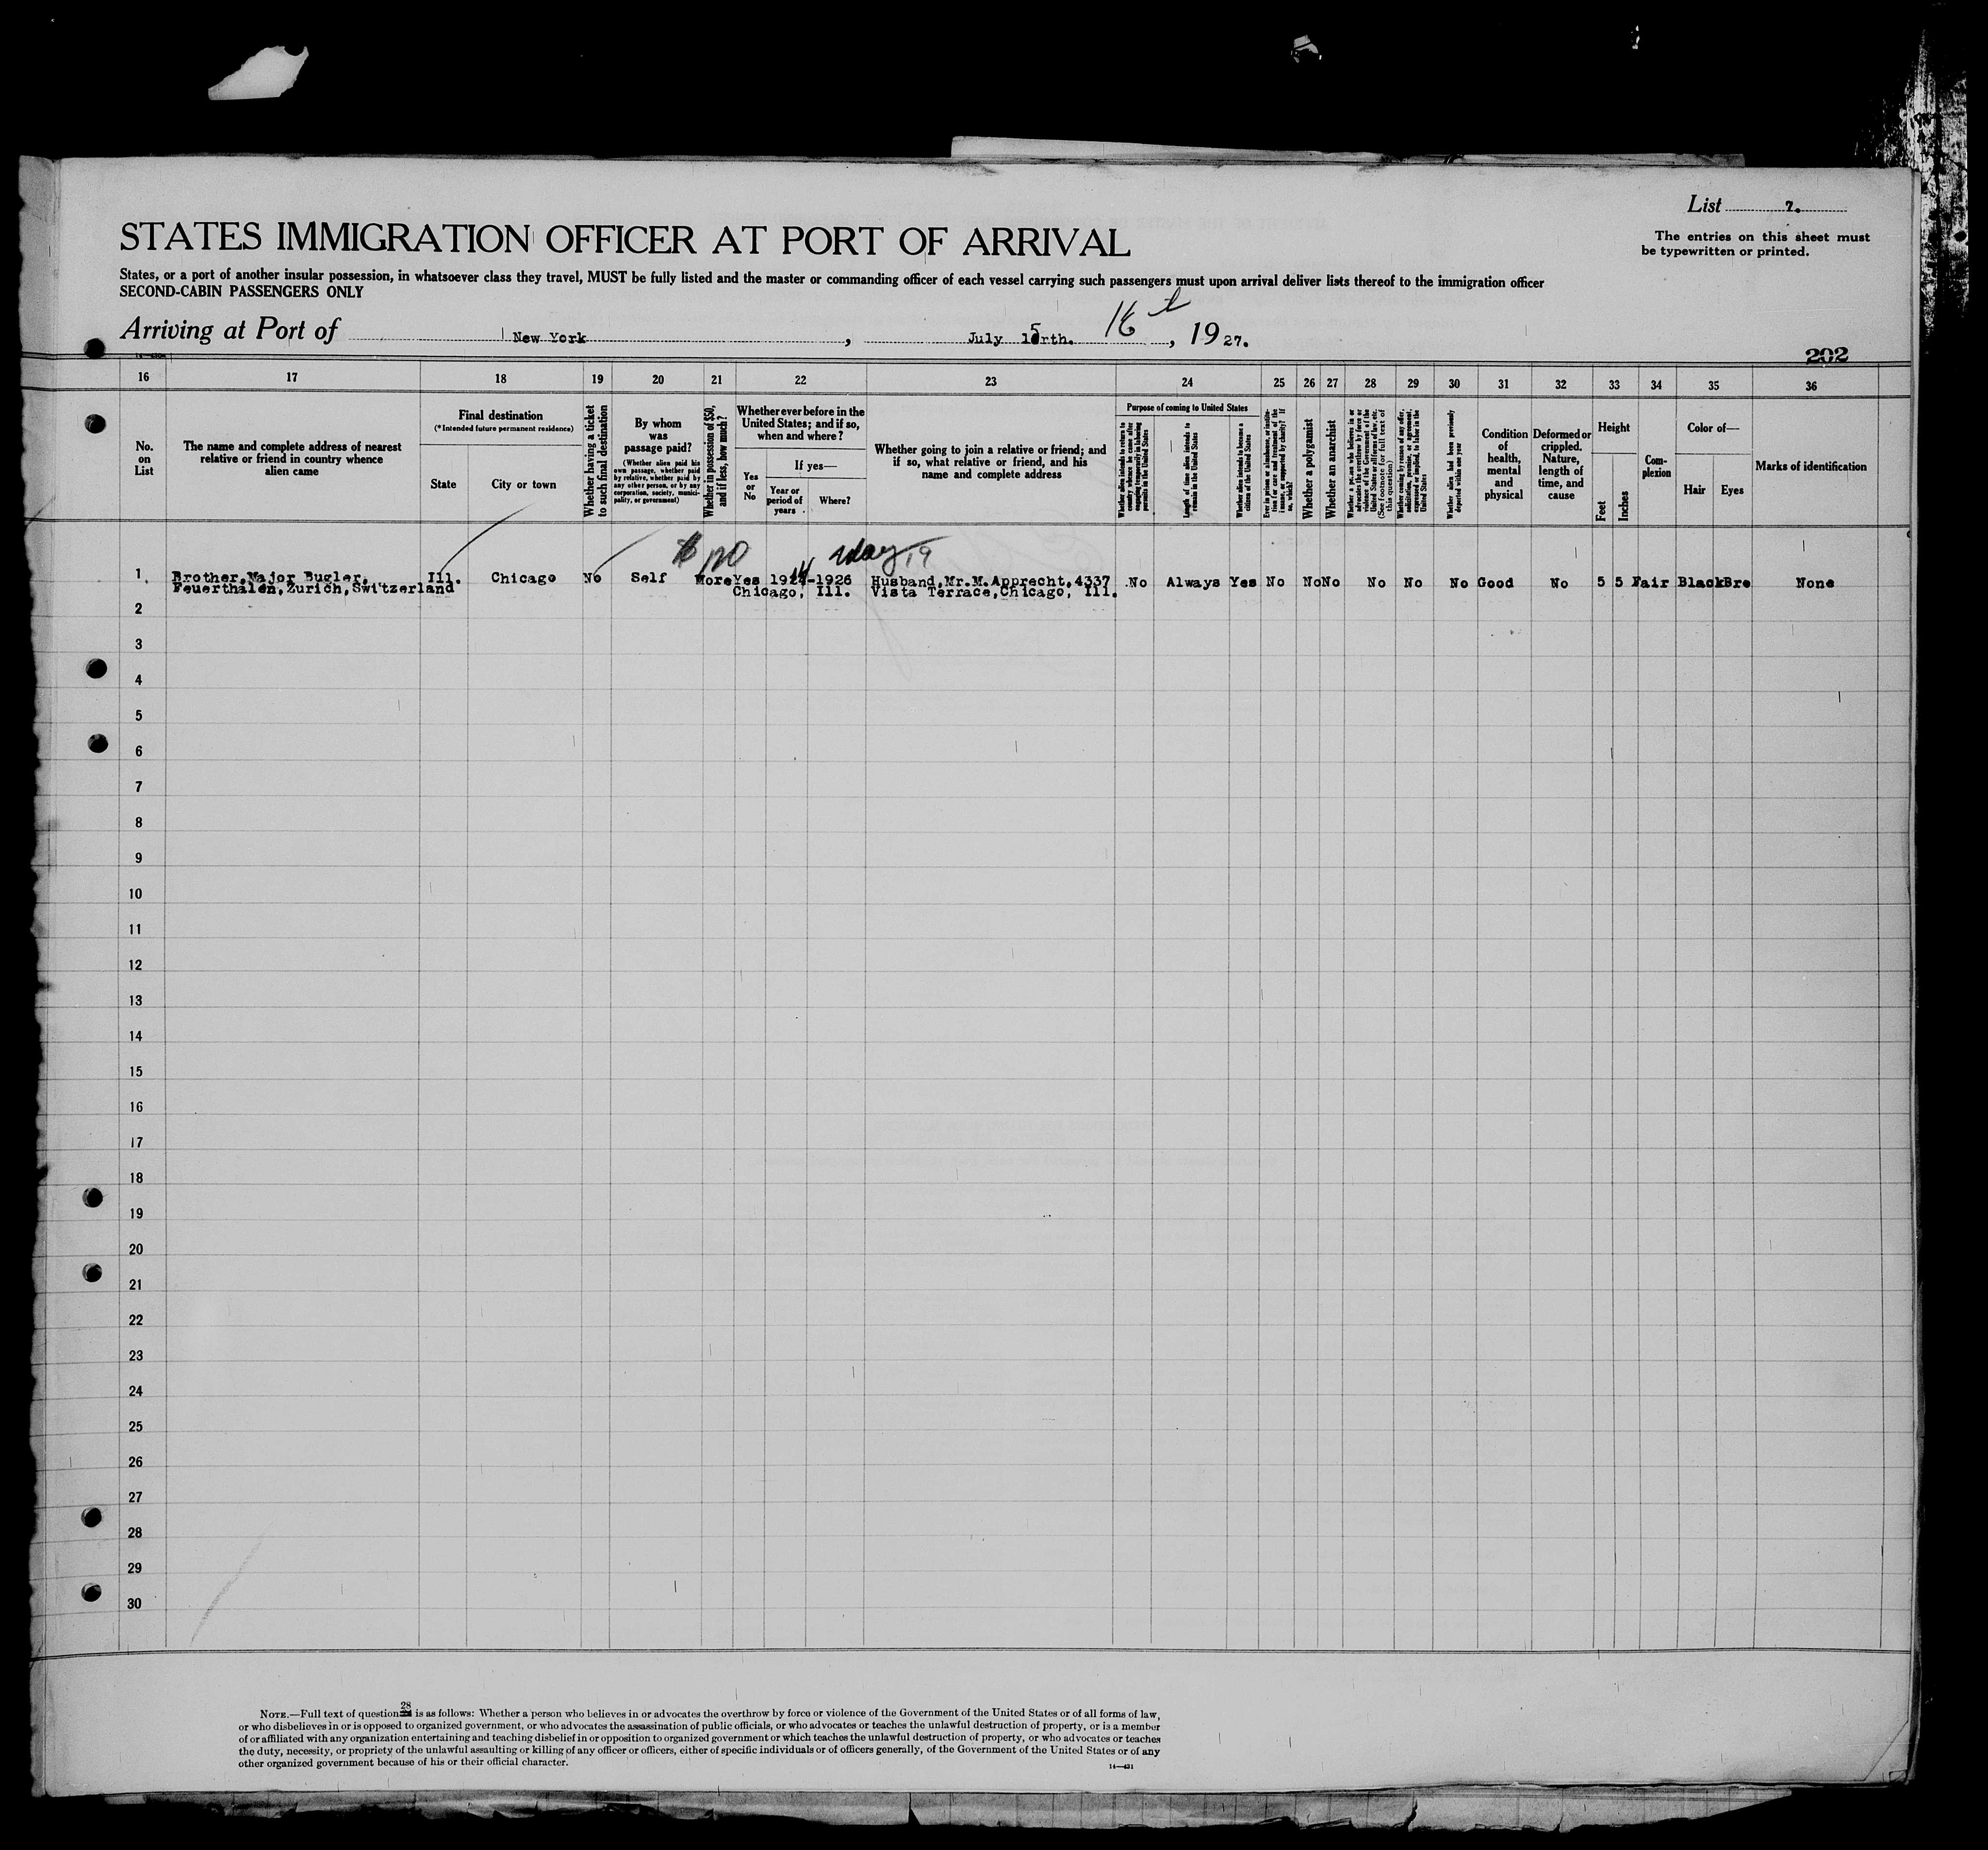 List 7.
The entries on this sheet must
be typewritten or printed.
STATES IMMIGRATION OFFICER AT PORT OF ARRIVAL
States, or a port of another insular possession, in whatsoever class they travel, MUST be fully listed and the master or commanding officer of each vessel carrying such passengers must upon arrival deliver lists thereof to the immigration officer
SECOND-CABIN PASSENGERS ONLY
Arriving at Port of New York, July 15rth. 16th, 1927.
202
16 17 18 19 20 21 22 23 24 25 26 27 28 29 30 31 32 33 34 35 36
No.
on
List
The name and complete address of nearest
relative or friend in country whence
alien came
Final destination
(*Intended future permanent residence)
State
City or town
Whether having a ticket
to such final destination
By whom
was
passage paid?
(Whether alien paid his
own passage, whether paid
by relative, whether paid by
any other person, or by any
corporation, society, munici-
pality, or government)
Whether in possession of $50,
and if less, how much?
Whether ever before in the
United States; and if so,
when and where?
Yes
or
No
If yes—
Year or
period of
years
Where?
Whether going to join a relative or friend; and
if so, what relative or friend, and his
name and complete address
Purpose of coming to United States
Whether alien intends to return to
country whence he came after
engaging temporarily in laboring
pursuits in the United States
Length of time alien intends to
remain in the United States
Whether alien intends to become a
citizen of the United States
Ever in prison or almshouse, or institu-
tion for care and treatment of the
insane, or supported by charity? If
so, which?
Whether a polygamist
Whether an anarchist
Whether a person who believes in or
advocates the overthrow by force or
violence of the Government of the
United States or all forms of law, etc.
(See footnote for full text of
this question)
Whether coming by reason of any offer,
solicitation, promise, or agreement,
expressed or implied, to labor in the
United States
Whether alien had been previously
deported within one year
Condition
of
health,
mental
and
physical
Deformed or
crippled.
Nature,
length of
time, and
cause
Height
Feet
Inches
Com-
plexion
Color of—
Hair
Eyes
Marks of identification
$ 120 May 19
1 Brother, Major Bugler, Ill. Chicago No Self More Yes 1924-1926 Husband, Mr. M. Apprecht, 4337 No Always Yes No No No No No No Good No 5 5 Fair Black Bre None
Feuerthalen, Zurich, Switzerland Chicago, Ill. Vista Terrace, Chicago, Ill.
2
3
4
5
6
7
8
9
10
11
12
13
14
15
16
17
18
19
20
21
22
23
24
25
26
27
28
29
30
28
NOTE.—Full text of question is as follows: Whether a person who believes in or advocates the overthrow by force or violence of the Government of the United States or of all forms of law,
or who disbelieves in or is opposed to organized government, or who advocates the assassination of public officials, or who advocates or teaches the unlawful destruction of property, or is a member
of or affiliated with any organization entertaining and teaching disbelief in or opposition to organized government or which teaches the unlawful destruction of property, or who advocates or teaches
the duty, necessity, or propriety of the unlawful assaulting or killing of any officer or officers, either of specific individuals or of officers generally, of the Government of the United States or of any
other organized government because of his or their official character.
14—431